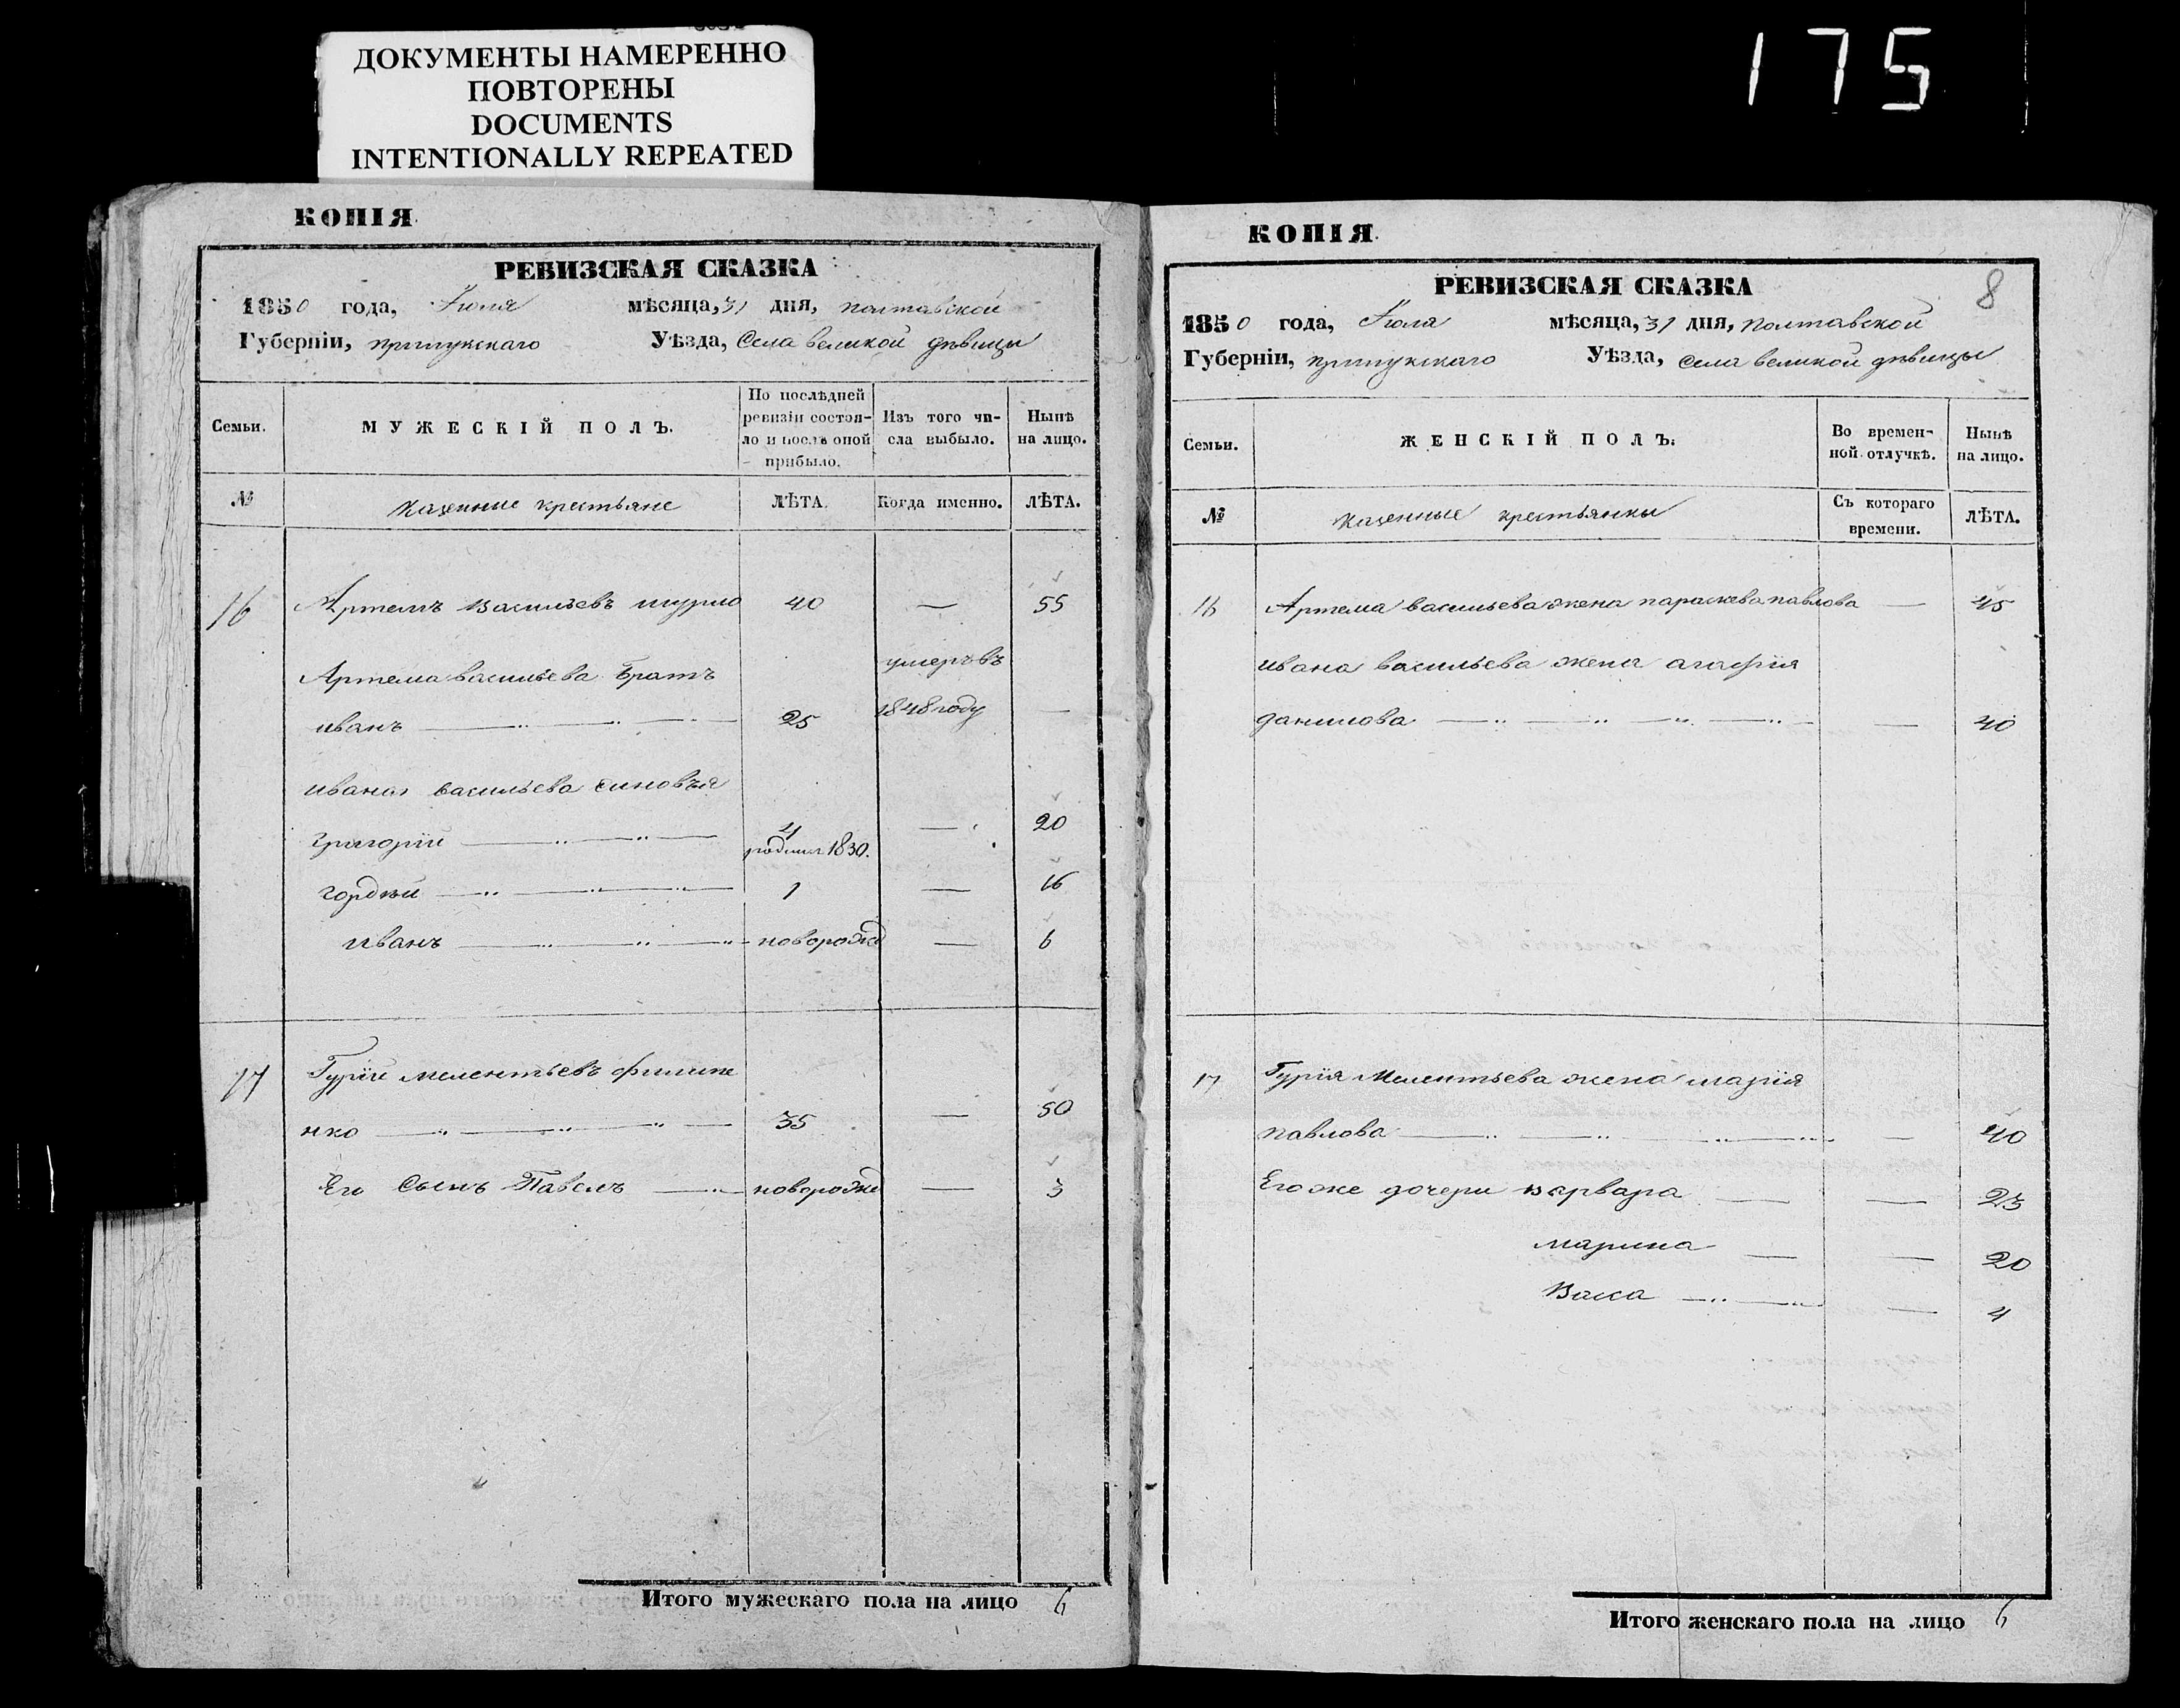 175
ДОКУМЕНТЫ НАМЕРЕННО
ПОВТОРЕНЫ
DOCUMENTS
INTENTIONALLY REPEATED
КОПІЯ
РЕВИЗСКАЯ СКАЗКА
1850 года, Іюля мѣсяца, 31 дня, полтавской
Губерніи, прилукскаго Уѣзда, Села великой дѣвицы
Семьи.
МУЖЕСКІЙ ПОЛЪ.
По послѣдней
ревизіи состоя-
ло и послѣ оной
прибыло.
Изъ того чи-
сла выбыло.
Нынѣ
на лицо.
№
казенные крестьяне
ЛѢТА.
Когда именно.
ЛѢТА.
16 Артемъ васильевъ 40 — 55
Артема васильева братъ умеръ въ
иванъ 25 1848 году —
ивана васильева синовья
григорій 4 — 20
родился 1830.
гордѣй 1 — 16
иванъ новорожд — 6
17 Гурій мелентьевъ филипе
нко 35 — 50
Его Сынъ Павелъ новорожд — 3
Итого мужескаго пола на лицо 6
КОПІЯ
8
РЕВИЗСКАЯ СКАЗКА
1850 года, Іюля мѣсяца, 31 дня, полтавской
Губерніи, прилукскаго Уѣзда, села великой дѣвицы
Семьи.
ЖЕНСКІЙ ПОЛЪ.
Во времен-
ной отлучкѣ.
Нынѣ
на лицо.
№
казенные крестьянки
Съ котораго
времени.
ЛѢТА.
16 Артема васильева жена параскева павлова — 45
ивана васильева жена агафія
данилова — 40
17 Гурія Мелентьева жена марія
павлова — 40
Его же дочери варвара — 23
марина — 20
Васса — 4
Итого женскаго пола на лицо 6